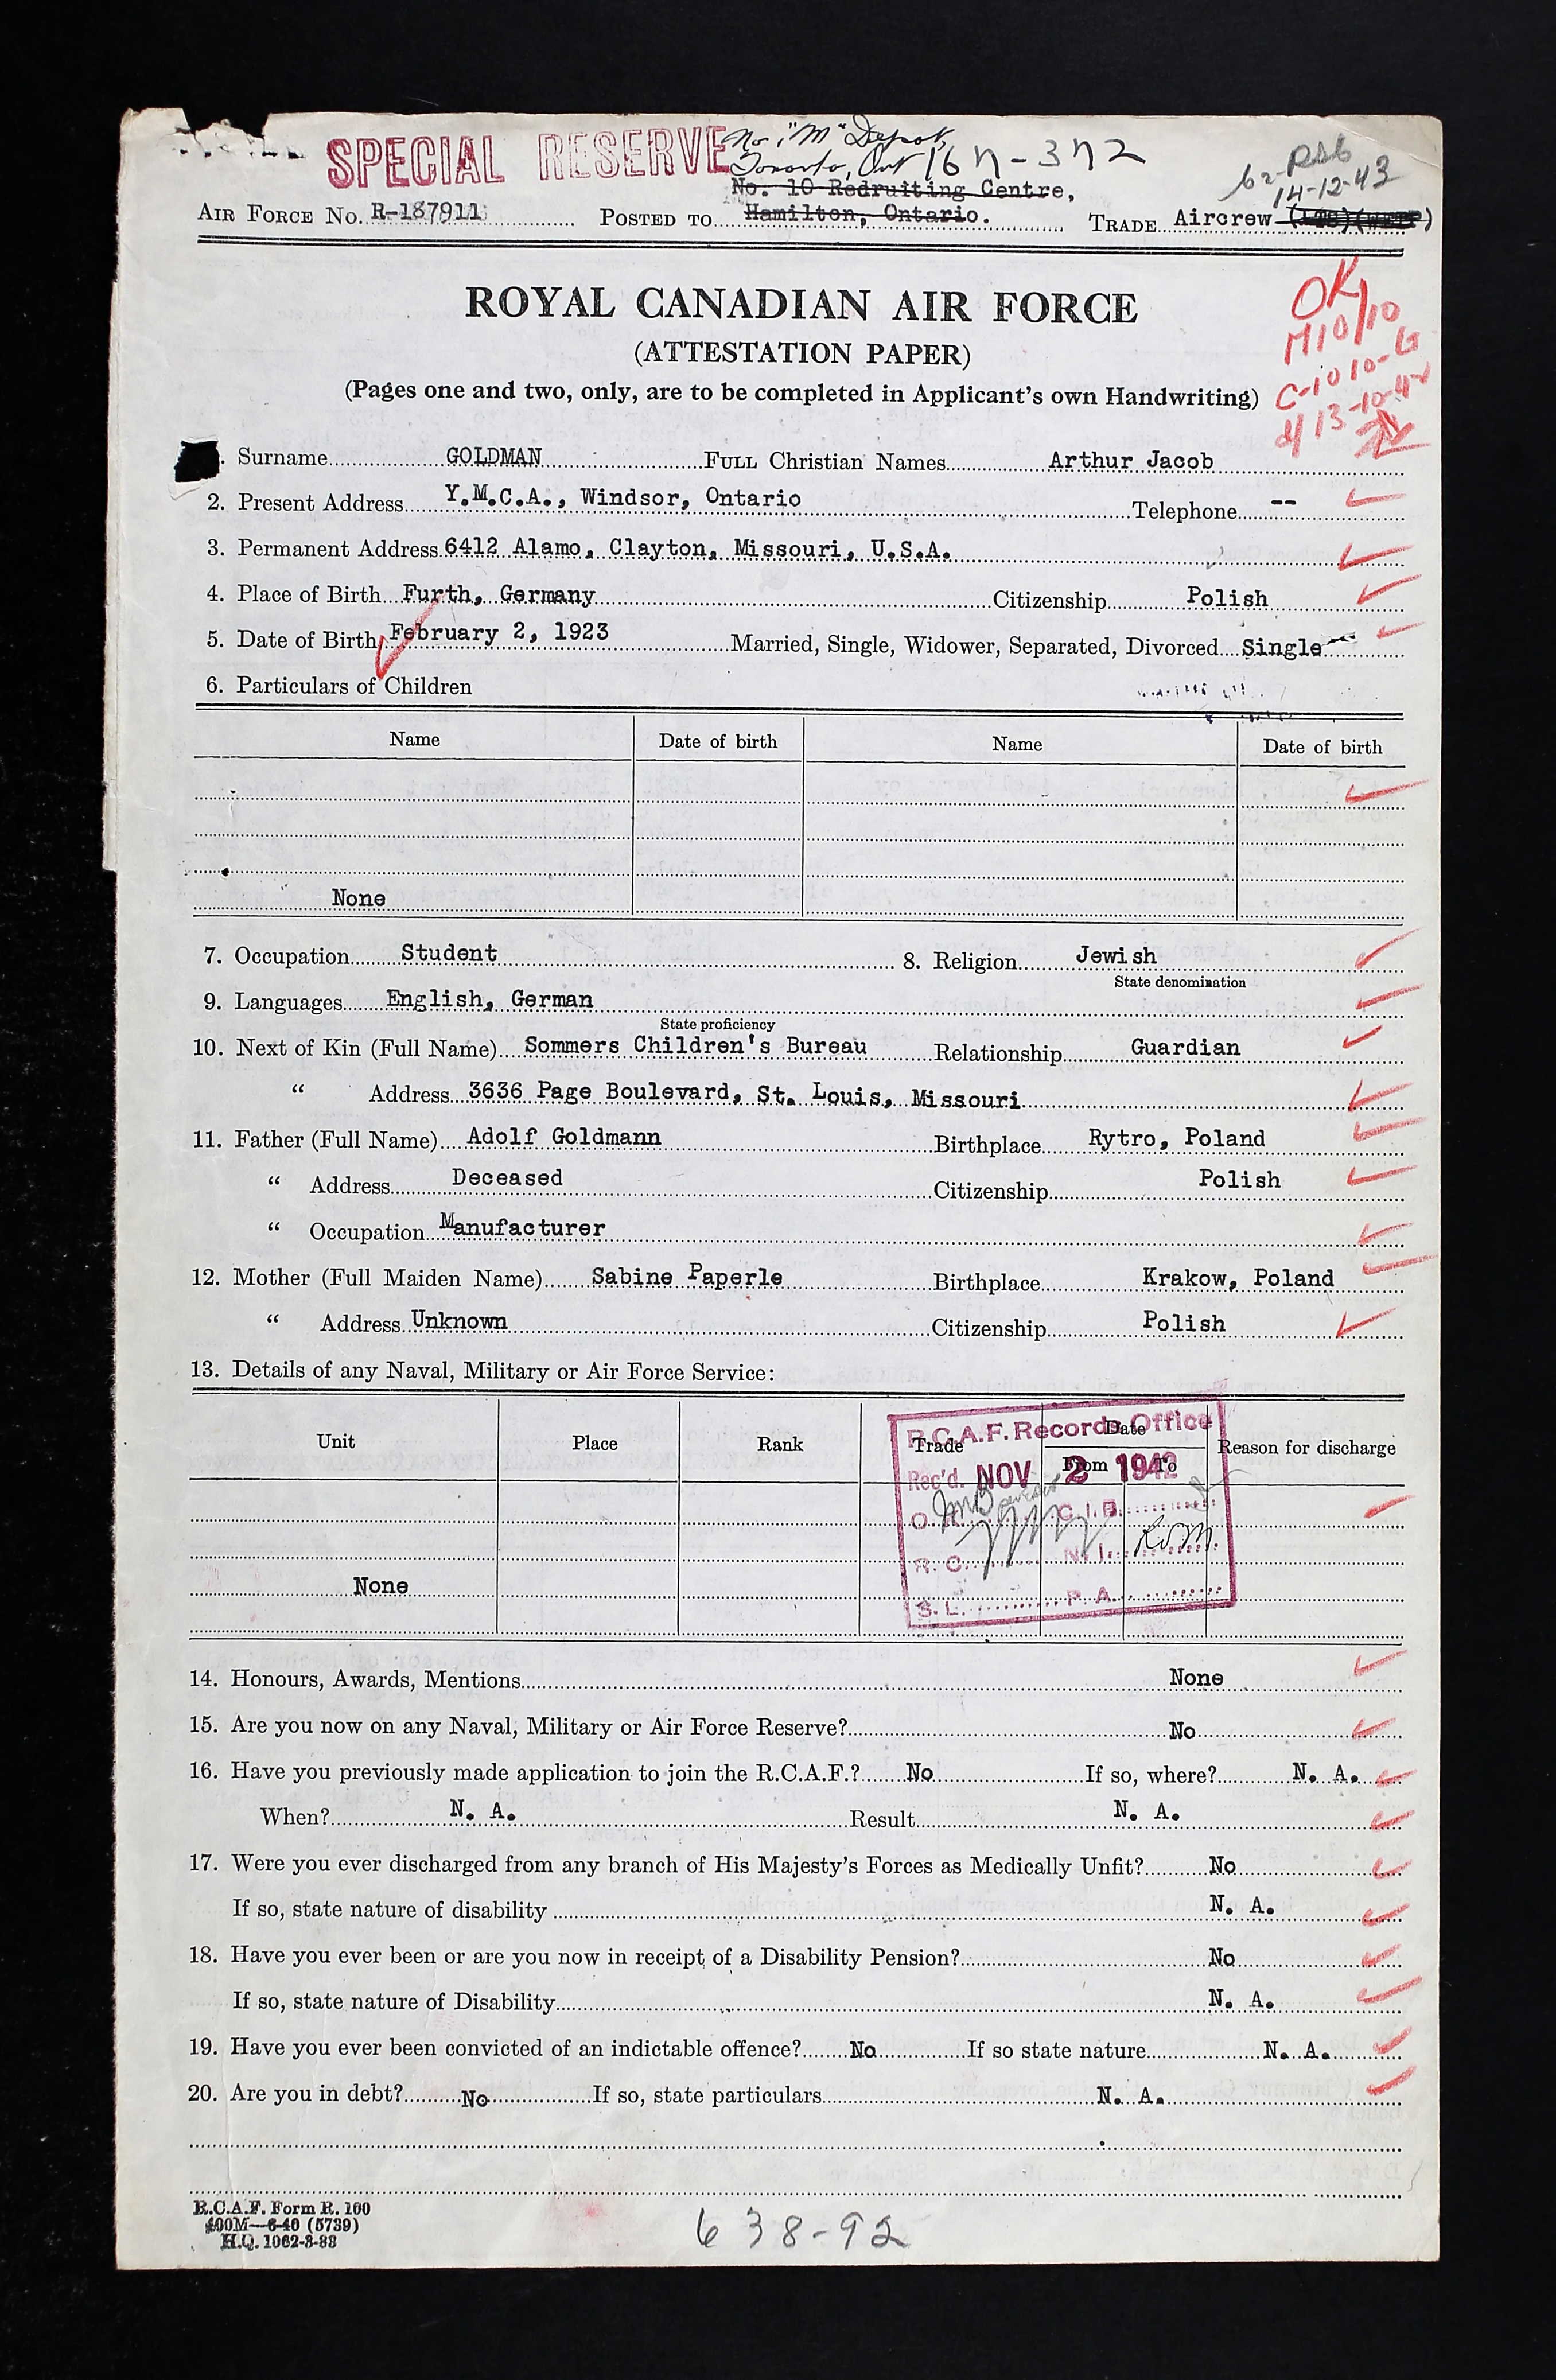 SPECIAL RESERVE
No. "M" Depot,
Toronto, Ont 16 N-372
14-12-43
No. 10 Redruiting Centre,
AIR FORCE No. R-187911 POSTED TO Hamilton, Ontario. TRADE Aircrew
ROYAL CANADIAN AIR FORCE
OK
M10/10
(ATTESTATION PAPER)
C-10 10-G
(Pages one and two, only, are to be completed in Applicant's own Handwriting)
1. Surname GOLDMAN FULL Christian Names Arthur Jacob
2. Present Address Y.M.C.A., Windsor, Ontario Telephone --
3. Permanent Address 6412 Alamo, Clayton, Missouri, U.S.A.
4. Place of Birth Furth, Germany Citizenship Polish
5. Date of Birth February 2, 1923 Married, Single, Widower, Separated, Divorced Single
6. Particulars of Children
Name Date of birth Name Date of birth
None
7. Occupation Student 8. Religion Jewish
State denomination
9. Languages English, German
State proficiency
10. Next of Kin (Full Name) Sommers Children's Bureau Relationship Guardian
" Address 3636 Page Boulevard, St. Louis, Missouri
11. Father (Full Name) Adolf Goldmann Birthplace Rytro, Poland
" Address Deceased Citizenship Polish
" Occupation Manufacturer
12. Mother (Full Maiden Name) Sabine Paperle Birthplace Krakow, Poland
" Address Unknown Citizenship Polish
13. Details of any Naval, Military or Air Force Service:
Unit Place Rank Trade Date From To Reason for discharge
R.C.A.F. Records Office
Rec'd. NOV 2 1942
O. C.I.B.
R. C. N. I.
S. L. P. A.
None
14. Honours, Awards, Mentions None
15. Are you now on any Naval, Military or Air Force Reserve? No
16. Have you previously made application to join the R.C.A.F.? No If so, where? N. A.
When? N. A. Result N. A.
17. Were you ever discharged from any branch of His Majesty's Forces as Medically Unfit? No
If so, state nature of disability N. A.
18. Have you ever been or are you now in receipt of a Disability Pension? No
If so, state nature of Disability N. A.
19. Have you ever been convicted of an indictable offence? No If so state nature N. A.
20. Are you in debt? No If so, state particulars N. A.
R.C.A.F. Form R. 100
400M—6-40 (5739)
H.Q. 1062-3-38
638-92